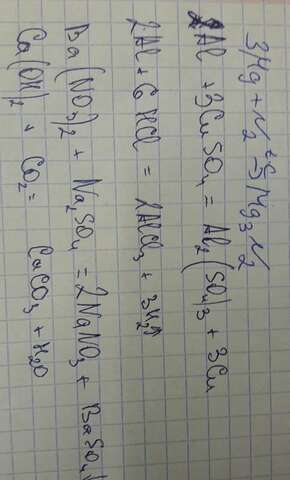 3Mg + N2 t°C→ Mg3N2
2Al + 3CuSO4 = Al2(SO4)3 + 3Cu
2Al + 6HCl = 2AlCl3 + 3H2↑
Ba(NO3)2 + Na2SO4 = 2NaNO3 + BaSO4↓
Ca(OH)2 + CO2 = CaCO3 + H2O